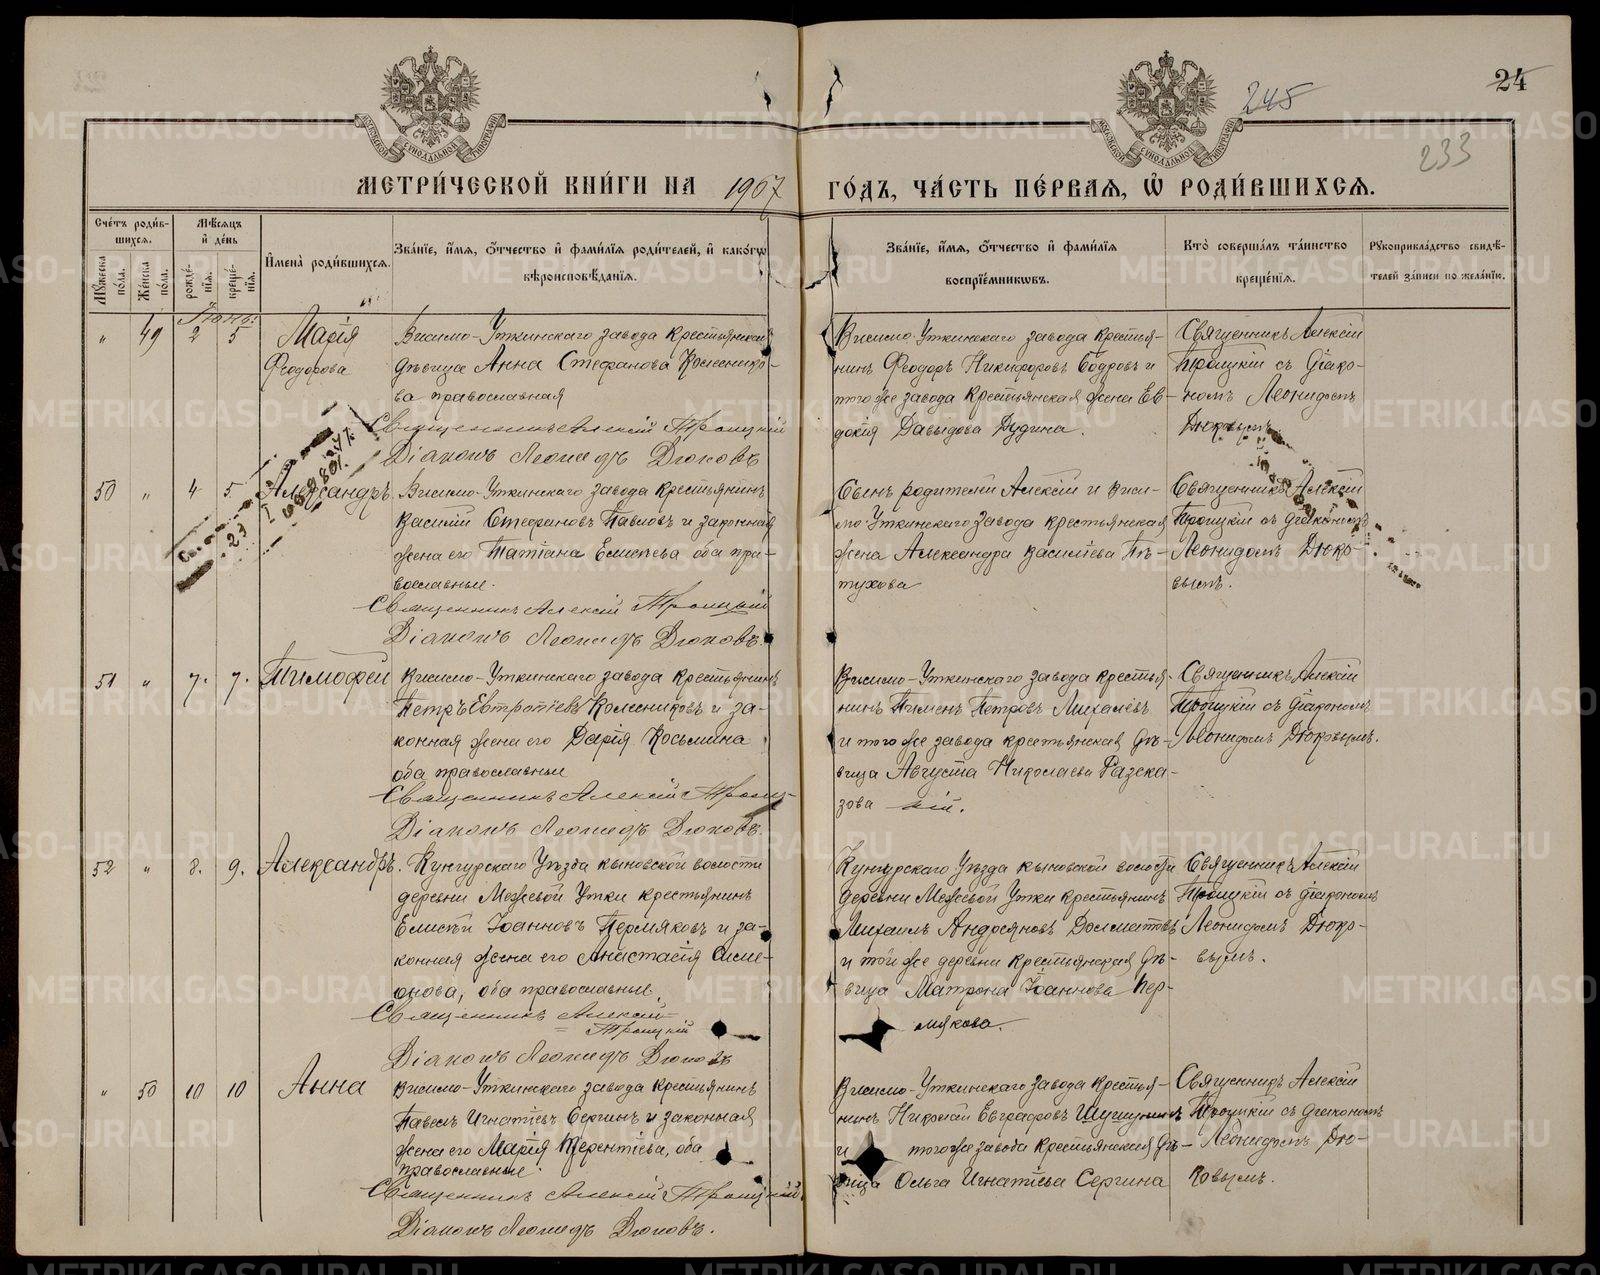 245
24
233
МЕТРИ́ЧЕСКОЙ КНИ́ГИ НА 1907 ГО́ДЪ, ЧА́СТЬ ПЕ́РВАЯ, Ѡ҆ РОДИ́ВШИХСЯ.
Счетъ роди́вшихся.
Мѣ́сяцъ и҆ де́нь
Му́жеска по́ла.
Же́нска по́ла.
рожде́нїя.
креще́нїя.
И҆мена̀ роди́вшихся.
Зва́нїе, и҆́мя, ѻ҆́тчество и҆ фами́лїя роди́телей, и҆ како́гѡ вѣроисповѣ́данїя.
Зва́нїе, и҆́мя, ѻ҆́тчество и҆ фами́лїя воспрїе́мниковъ.
Кто̀ соверша́лъ та́инство креще́нїя.
Рукоприкла́дство свидѣ́телей за́писи по жела́нїю.
" 49 2 5 Марія Феодорова
Висимо-Уткинскаго завода крестьянская
дѣвица Анна Стефанова Колеснико-
ва православная
Священникъ Алексій Троицкій
Діаконъ Леонидъ Дюковъ
Висимо-Уткинскаго завода крестья-
нинъ Феодоръ Никифоровъ Бодровъ и
того же завода крестьянская жена Ев-
докія Давыдова Дудина.
Священникъ Алексій
Троицкій съ діако-
номъ Леонидомъ
Дюковымъ
50 " 4 5 Александръ.
Висимо-Уткинскаго завода крестьянинъ
Василій Стефановъ Павловъ и законная
жена его Татіана Елисѣева оба пра-
вославные.
Священникъ Алексій Троицкій
Діаконъ Леонидъ Дюковъ.
Сынъ родителей Алексій и Виси-
мо-Уткинскаго завода крестьянская
жена Александра Василіева Пѣ-
тухова
Священникъ Алексій
Троицкій съ діакономъ
Леонидомъ Дюко-
вымъ.
51 " 7. 7. Тимофей
Висимо-Уткинскаго завода крестьянинъ
Петръ Евтропіевъ Колесниковъ и за-
конная жена его Дарія Косьмина
оба православные
Священникъ Алексій Троиц-
кій.
Діаконъ Леонидъ Дюковъ.
Висимо-Уткинскаго завода крестья-
нинъ Пименъ Петровъ Михалёвъ
и того же завода крестьянская дѣ-
вица Августа Николаева Разска-
зова
Священникъ Алексій
Троицкій съ діакономъ
Леонидомъ Дюковымъ.
52 " 8. 9. Александръ.
Кунгурскаго Уѣзда Кыновской волости
деревни Межевой Утки крестьянинъ
Елисѣй Іоанновъ Пермяковъ и за-
конная жена его Анастасія Симе-
онова, оба православные.
Священникъ Алексій
Троицкій
Діаконъ Леонидъ Дюковъ
Кунгурскаго Уѣзда Кыновской волости
деревни Межевой Утки крестьянинъ
Михаилъ Андреяновъ Долматовъ
и той же деревни крестьянская дѣ-
вица Матрона Іоаннова Пер-
мякова.
Священникъ Алексій
Троицкій съ діакономъ
Леонидомъ Дюко-
вымъ.
" 50 10 10 Анна
Висимо-Уткинскаго завода крестьянинъ
Павелъ Игнатіевъ Сергинъ и законная
жена его Марія Терентіева, оба
православные.
Священникъ Алексій Троицкій
Діаконъ Леонидъ Дюковъ.
Висимо-Уткинскаго завода крестья-
нинъ Николай Евграфовъ
и того же завода крестьянская дѣ-
вица Ольга Игнатіева Сергина
Священникъ Алексій
Троицкій съ діакономъ
Леонидомъ Дю-
ковымъ.
METRIKI.GASO-URAL.RU